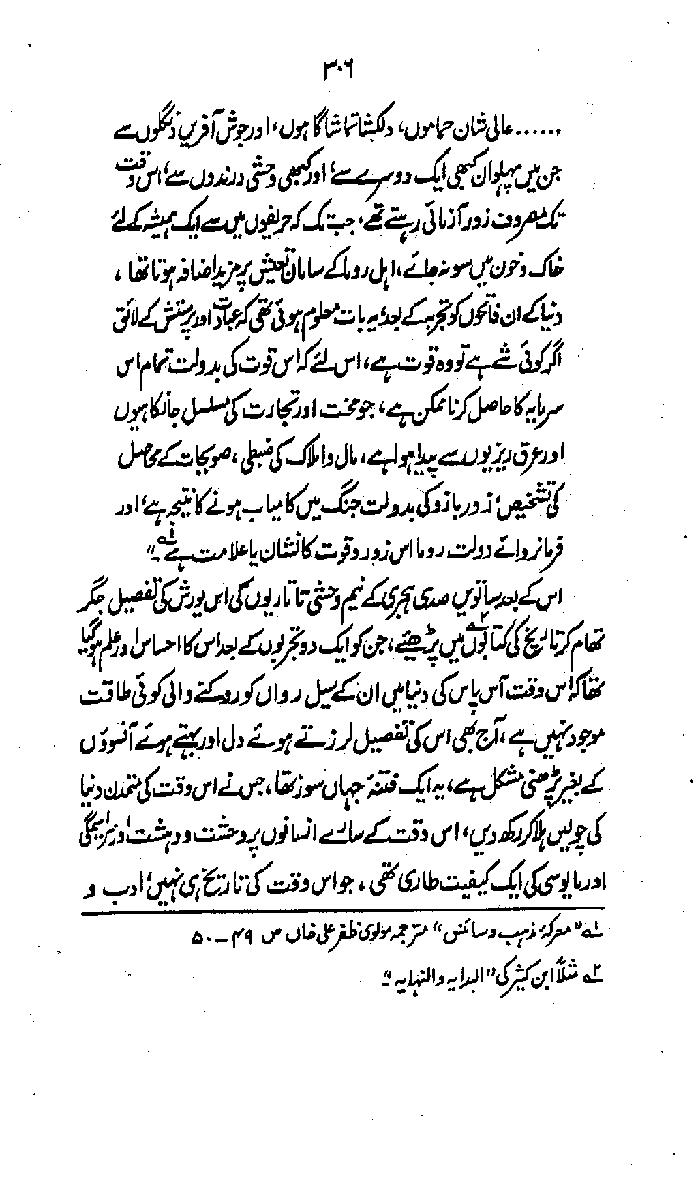 ۳۰۶
...... عالی شان حماموں، دلکشا تماشا گاہوں، اور جوش آفریں دنگلوں سے
جن میں پہلوان کبھی ایک دوسرے سے، اور کبھی وحشی درندوں سے، اس وقت
تک مصروف زور آزمائی رہتے تھے، جب تک کہ حریفوں میں سے ایک ہمیشہ کے لئے
خاک و خون میں سو نہ جائے، اہل روما کے سامان تعیش پر مزید اضافہ ہوتا تھا،
دنیا کے ان فاتحوں کو تجربہ کے بعد یہ بات معلوم ہوئی تھی کہ عبادت اور پرستش کے لائق
اگر کوئی شے ہے تو وہ قوت ہے، اس لئے کہ اس قوت کی بدولت تمام اس
سرمایہ کا حاصل کرنا ممکن ہے، جو محنت اور تجارت کی مسلسل جانکاہیوں
اور عرق ریزیوں سے پیدا ہوا ہے، مال و املاک کی ضبطی، صوبجات کے محاصل
کی تشخیص، زور بازو کی بدولت جنگ میں کامیاب ہونے کا نتیجہ ہے، اور
فرمانروائے دولت روما اس زور و قوت کا نشان یا علامت ہے۱؎"
اس کے بعد ساتویں صدی ہجری کے نیم وحشی تاتاریوں کی اس یورش کی تفصیل جگر
تھام کر تاریخ کی کتابوں۲؎ میں پڑھیئے، جن کو ایک دو تجربوں کے بعد اس کا احساس اور علم ہوگیا
تھا کہ اس وقت آس پاس کی دنیا میں ان کے سیل رواں کو روکنے والی کوئی طاقت
موجود نہیں ہے، آج بھی اس کی تفصیل لرزتے ہوئے دل اور بہتے ہوئے آنسوؤں
کے بغیر پڑھنی مشکل ہے، یہ ایک فتنۂ جہاں سوز تھا، جس نے اس وقت کی متمدن دنیا
کی چولیں ہلا کر رکھ دیں، اس وقت کے سارے انسانوں پر وحشت و دہشت اور سراسیمگی
اور مایوسی کی ایک کیفیت طاری تھی، جو اس وقت کی تاریخ ہی نہیں، ادب و
۱؎ "معرکۂ مذہب و سائنس" مترجمہ مولوی ظفر علی خاں ص ۴۹-۵۰
۲؎ مثلاً ابن کثیر کی "البدایہ والنہایہ"۔